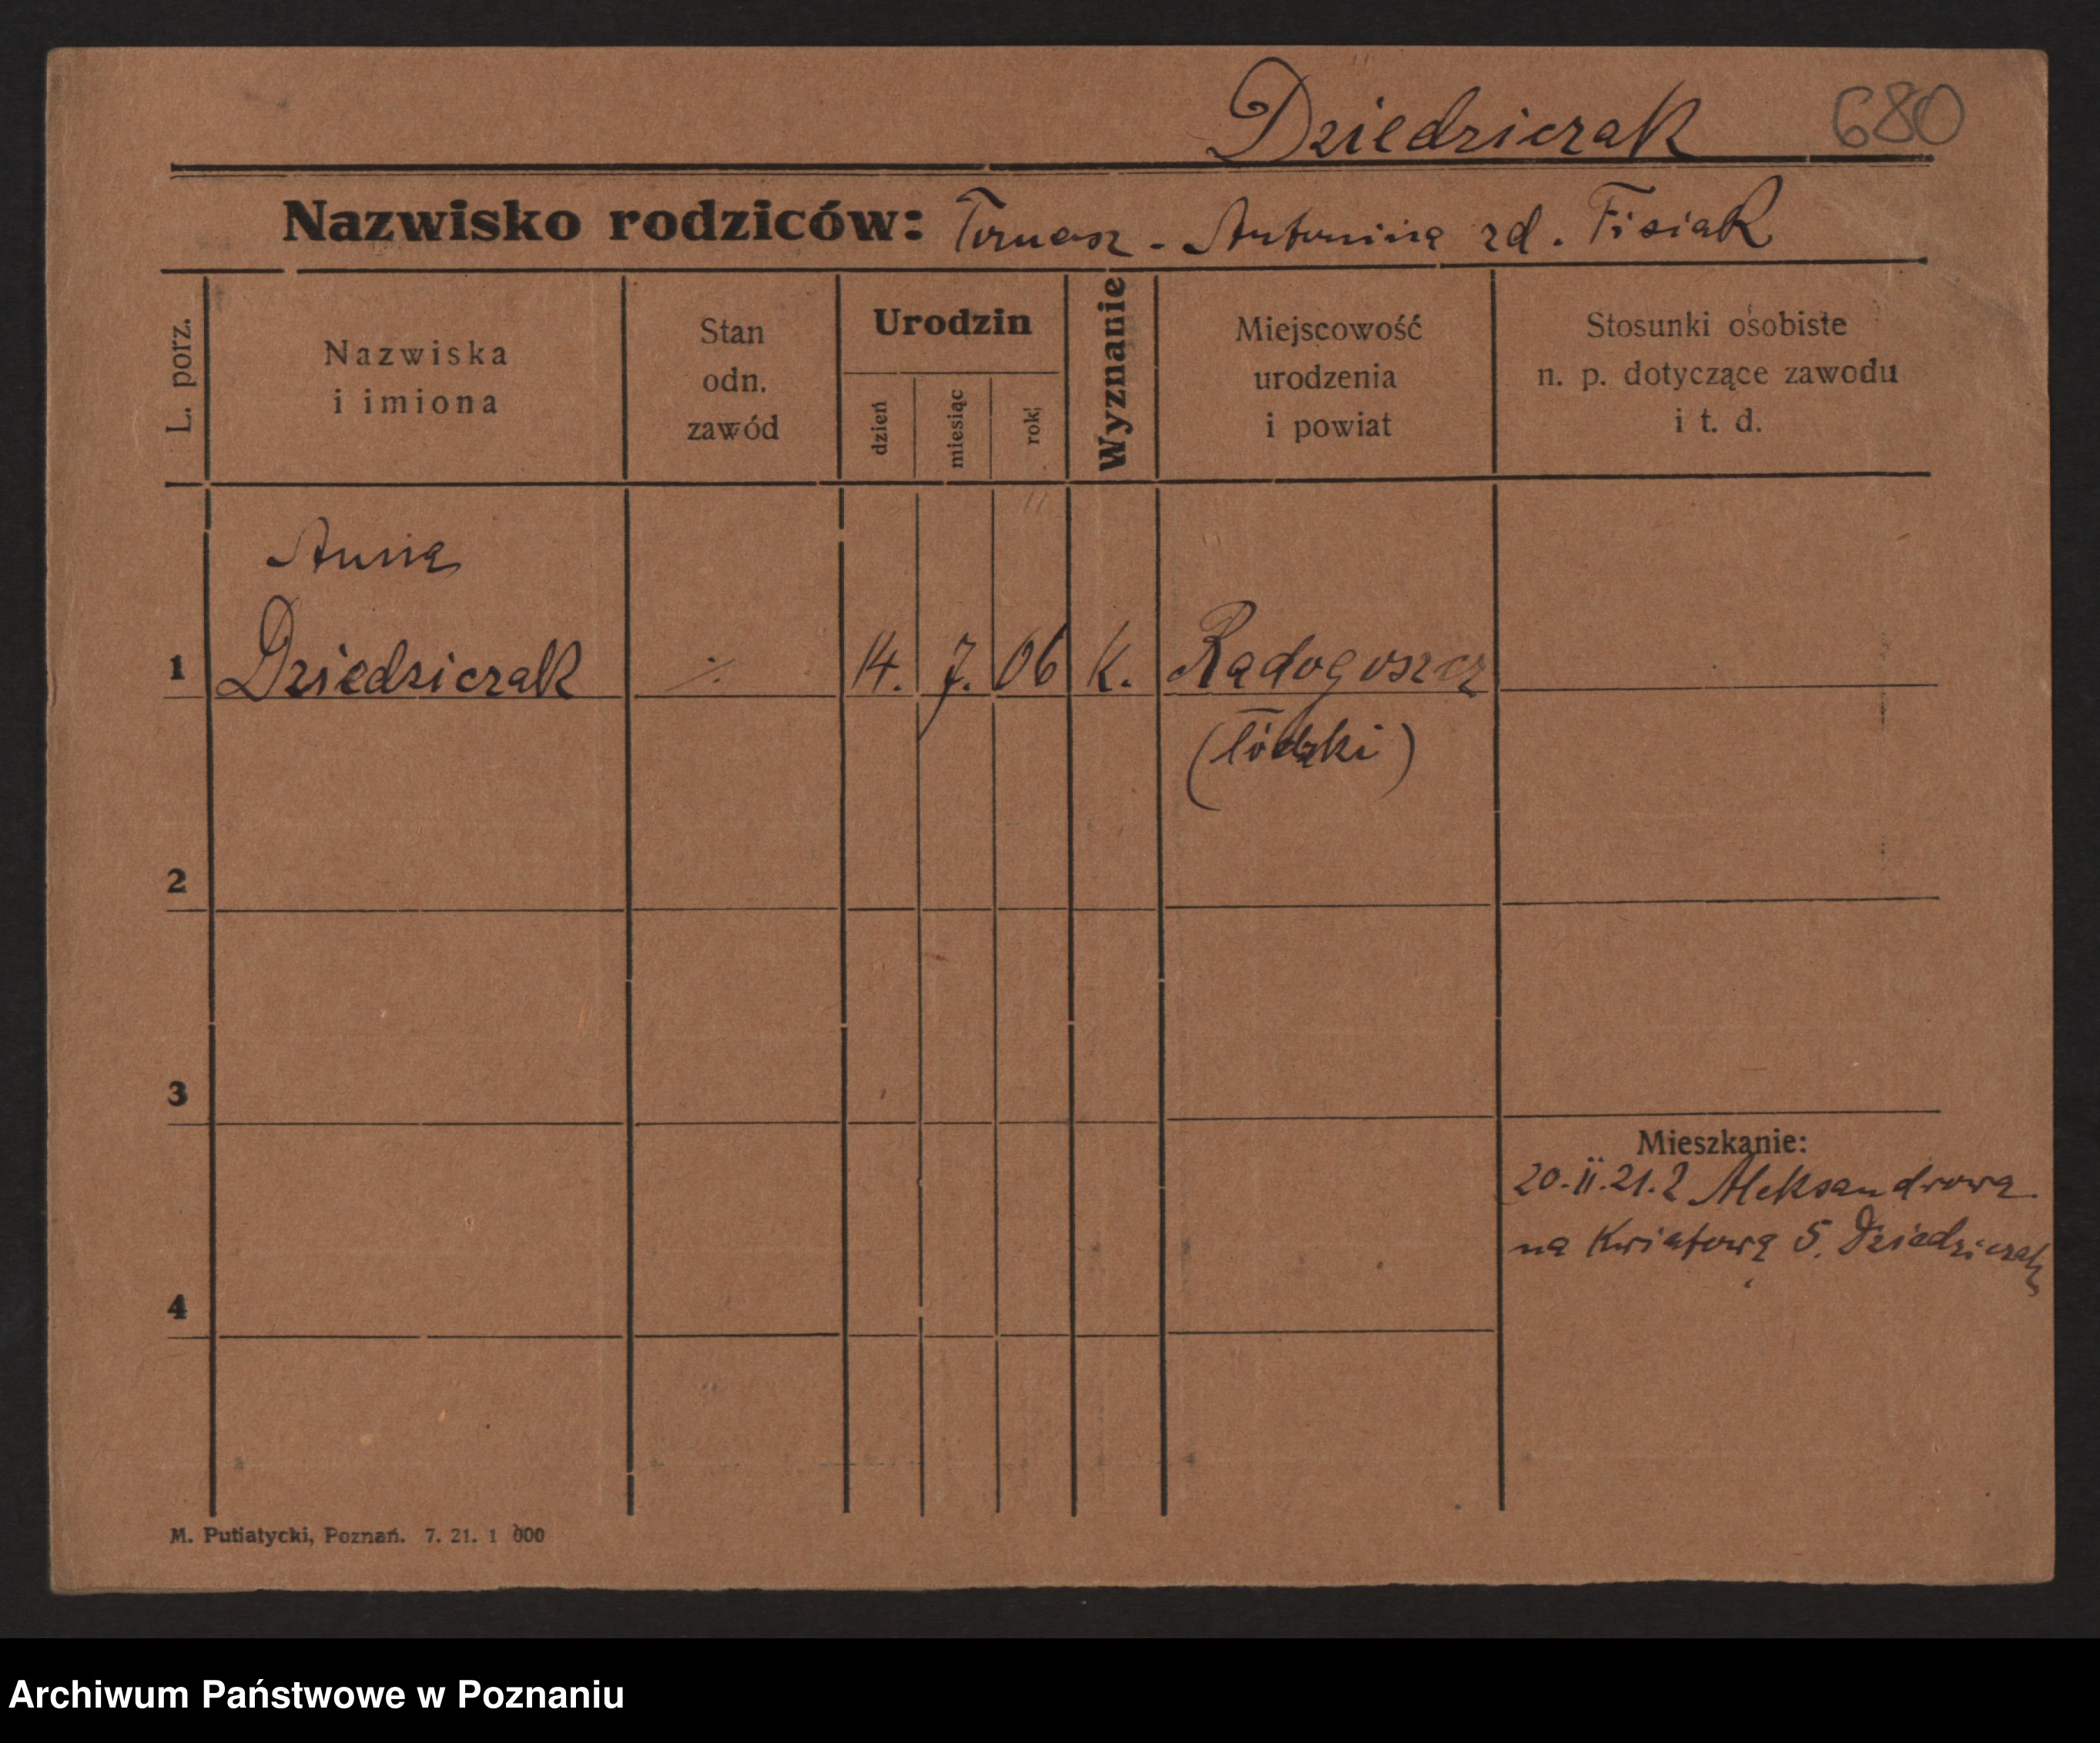 Dziedziczak 680
Nazwisko rodziców: Tomasz - Antonina zd. Fisiak
L. porz.
Nazwiska
i imiona
Stan
odn.
zawód
Urodzin
dzień
miesiąc
rok
Wyznanie
Miejscowość
urodzenia
i powiat
Stosunki osobiste
n. p. dotyczące zawodu
i t. d.
Anna
1 Dziedziczak ./. 14. 7. 06 K. Radogoszcz
(łódzki)
2
3
Mieszkanie:
20.II.21. z Aleksandrowa
na Kwiatową 5. Dziedziczak
4
M. Putiatycki, Poznań. 7. 21. 1 000
Archiwum Państwowe w Poznaniu